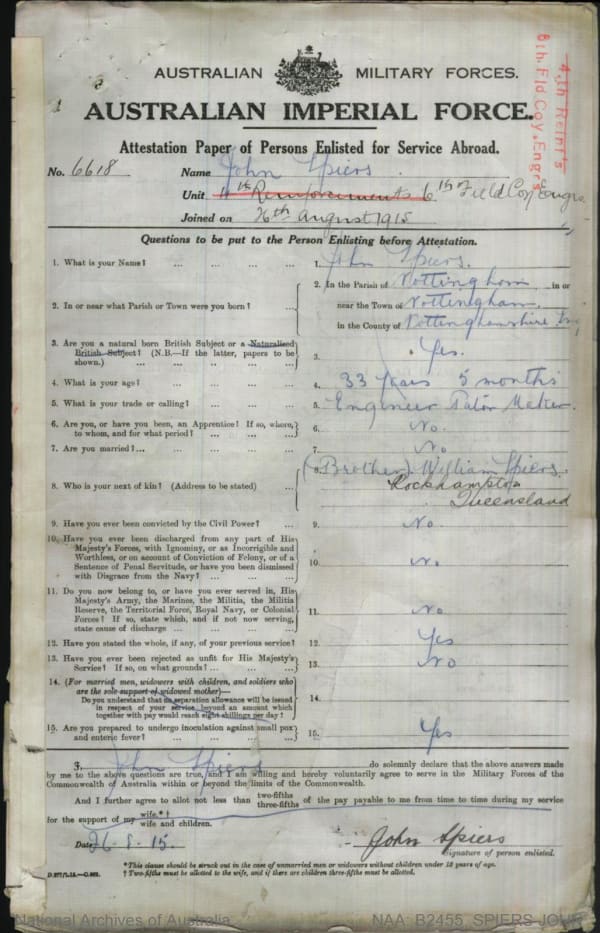 AUSTRALIAN MILITARY FORCES.
AUSTRALIAN IMPERIAL FORCE.
4th Reint's
6th. Fld Coy. Engrs
Attestation Paper of Persons Enlisted for Service Abroad.
No. 6618 Name John Spiers.
Unit 4th Reinforcements 6th Field Coy Engrs
Joined on 26th August 1915
Questions to be put to the Person Enlisting before Attestation.
1. What is your Name? ... ... ... ... 1. John Spiers.
2. In or near what Parish or Town were you born? ... 2. In the Parish of Nottingham, in or
near the Town of Nottingham
in the County of Nottinghamshire
3. Are you a natural born British Subject or a Naturalised
British Subject? (N.B.—If the latter, papers to be
shown.) ... ... ... ... ... 3. Yes.
4. What is your age? ... ... ... ... 4. 33 years 5 months
5. What is your trade or calling? ... ... ... 5. Engineer Patern Maker.
6. Are you, or have you been, an Apprentice? If so, where,
to whom, and for what period? ... ... ... 6. No.
7. Are you married? ... ... ... ... ... 7. No
8. Who is your next of kin? (Address to be stated) ... 8. (Brother) William Spiers.
Rockhampton
Queensland
9. Have you ever been convicted by the Civil Power? ... 9. No.
10. Have you ever been discharged from any part of His
Majesty's Forces, with Ignominy, or as Incorrigible and
Worthless, or on account of Conviction of Felony, or of a
Sentence of Penal Servitude, or have you been dismissed
with Disgrace from the Navy? ... ... ... 10. No.
11. Do you now belong to, or have you ever served in, His
Majesty's Army, the Marines, the Militia, the Militia
Reserve, the Territorial Force, Royal Navy, or Colonial
Forces? If so, state which, and if not now serving,
state cause of discharge ... ... ... ... 11. No
12. Have you stated the whole, if any, of your previous service? 12. Yes
13. Have you ever been rejected as unfit for His Majesty's
Service? If so, on what grounds? ... ... ... 13. No
14. (For married men, widowers with children, and soldiers who
are the sole support of widowed mother)—
Do you understand that no separation allowance will be issued
in respect of your service beyond an amount which
together with pay would reach eight shillings per day? 14.
15. Are you prepared to undergo inoculation against small pox
and enteric fever? ... ... ... ... ... 15. Yes
I, John Spiers do solemnly declare that the above answers made
by me to the above questions are true, and I am willing and hereby voluntarily agree to serve in the Military Forces of the
Commonwealth of Australia within or beyond the limits of the Commonwealth.
And I further agree to allot not less than two-fifths three-fifths of the pay payable to me from time to time during my service
for the support of my wife.*† wife and children.
Date 26-8-15. John Spiers
Signature of person enlisted.
*This clause should be struck out in the case of unmarried men or widowers without children under 18 years of age.
† Two-fifths must be allotted to the wife, and if there are children three-fifths must be allotted.
National Archives of Australia NAA: B2455, SPIERS JOHN